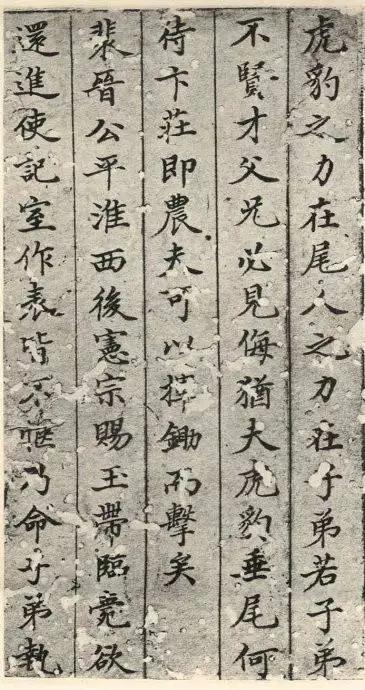 虎豹之力在尾人之力在子弟若子弟
不賢才父兄必見侮猶大虎豹垂尾何
待卞莊即農夫可以揮鋤而擊矣
裴晉公平淮西後憲宗賜玉帶臨薨欲
還進使記室作表皆不愜乃命子弟執